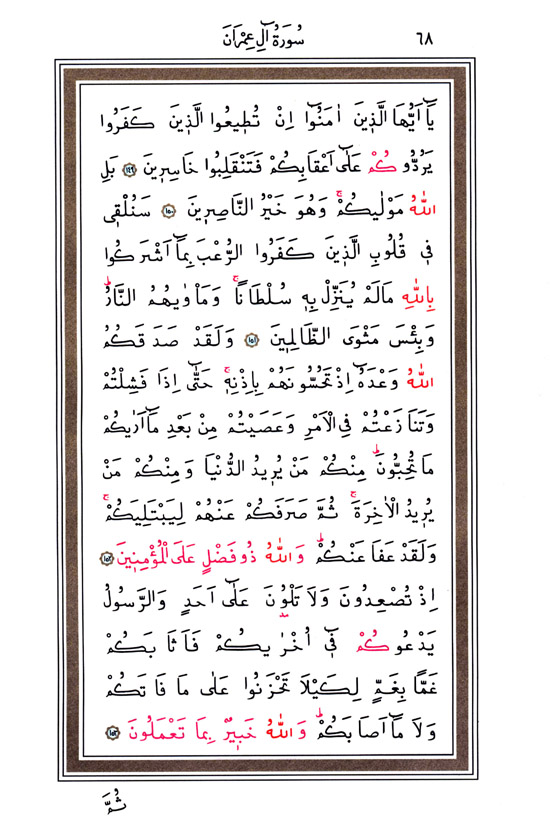 ٦٨ سُورَةُ اٰلِ عِمْرَانَ
يَٓا اَيُّهَا الَّذٖينَ اٰمَنُٓوا اِنْ تُطٖيعُوا الَّذٖينَ كَفَرُوا
يَرُدُّوكُمْ عَلٰٓى اَعْقَابِكُمْ فَتَنْقَلِبُوا خَاسِرٖينَ ﴿١٤٩﴾ بَلِ
اللّٰهُ مَوْلٰيكُمْۚ وَهُوَ خَيْرُ النَّاصِرٖينَ ﴿١٥٠﴾ سَنُلْقٖى
فٖى قُلُوبِ الَّذٖينَ كَفَرُوا الرُّعْبَ بِمَٓا اَشْرَكُوا
بِاللّٰهِ مَالَمْ يُنَزِّلْ بِهٖ سُلْطَانًاۚ وَمَاْوٰيهُمُ النَّارُؕ
وَبِئْسَ مَثْوَى الظَّالِمٖينَ ﴿١٥١﴾ وَلَقَدْ صَدَقَكُمُ
اللّٰهُ وَعْدَهُٓ اِذْ تَحُسُّونَهُمْ بِاِذْنِهٖۚ حَتّٰٓى اِذَا فَشِلْتُمْ
وَتَنَازَعْتُمْ فِى الْاَمْرِ وَعَصَيْتُمْ مِنْ بَعْدِ مَٓا اَرٰيكُمْ
مَا تُحِبُّونَؕ مِنْكُمْ مَنْ يُرٖيدُ الدُّنْيَا وَمِنْكُمْ مَنْ
يُرٖيدُ الْاٰخِرَةَۚ ثُمَّ صَرَفَكُمْ عَنْهُمْ لِيَبْتَلِيَكُمْۚ
وَلَقَدْ عَفَا عَنْكُمْؕ وَاللّٰهُ ذُو فَضْلٍ عَلَى الْمُؤْمِنٖينَ ﴿١٥٢﴾
اِذْ تُصْعِدُونَ وَلَا تَلْوُ۫نَ عَلٰٓى اَحَدٍ وَالرَّسُولُ
يَدْعُوكُمْ فٖٓى اُخْرٰيكُمْ فَاَثَابَكُمْ
غَمًّا بِغَمٍّ لِكَيْلَا تَحْزَنُوا عَلٰى مَا فَاتَكُمْ
وَلَا مَٓا اَصَابَكُمْؕ وَاللّٰهُ خَبٖيرٌ بِمَا تَعْمَلُونَ ﴿١٥٣﴾
ثُمَّ